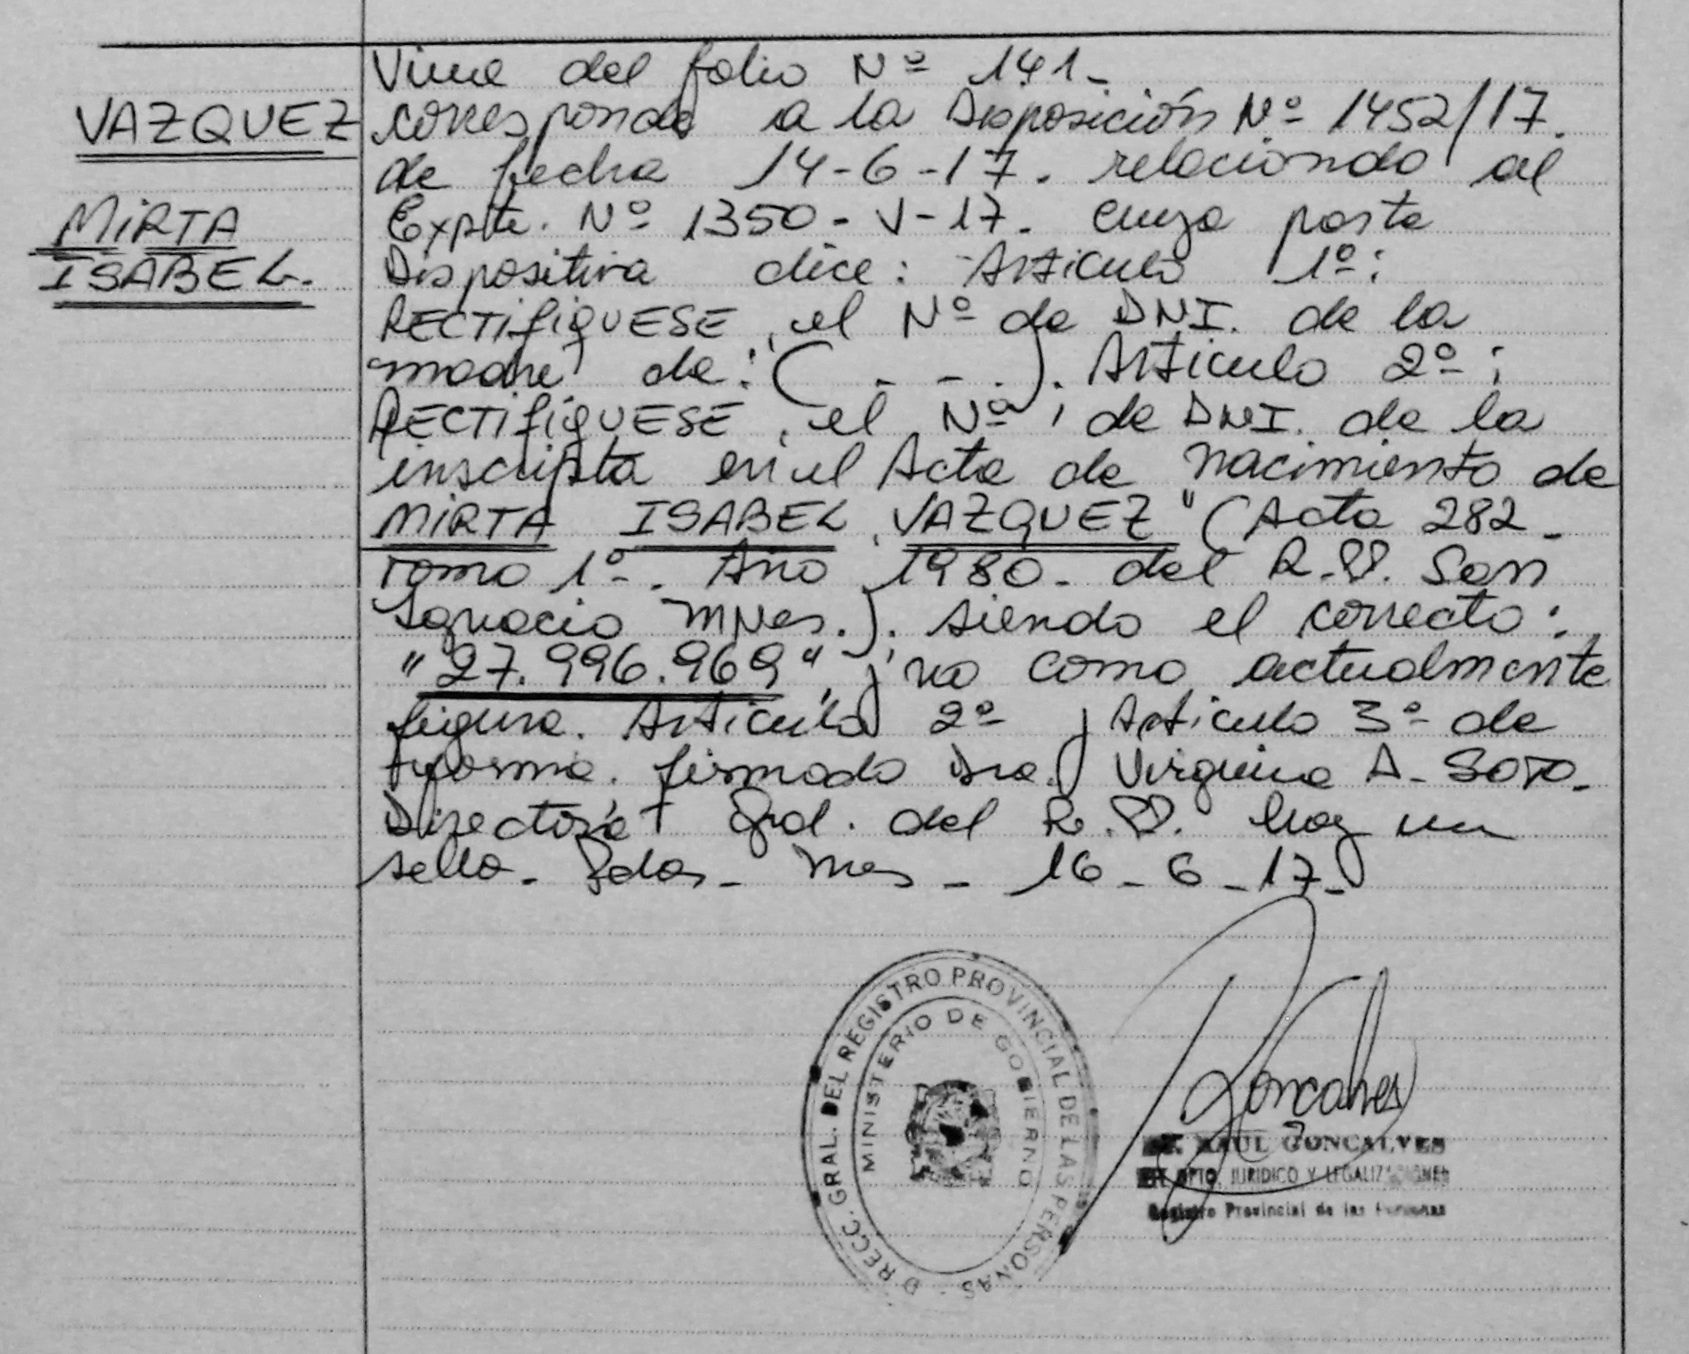 VAZQUEZ
MIRTA
ISABEL.
Viene del folio Nº 141-
corresponde a la Disposición Nº 1452/17.
de fecha 14-6-17. relacionado al
Expte. Nº 1350-V-17. cuya parte
Dispositiva dice: Artículo 1º:
RECTIFIQUESE, el Nº de DNI. de la
madre de: ( - - . ). Artículo 2º:
RECTIFIQUESE, el Nº, de DNI. de la
inscripta en el Acta de nacimiento de
MIRTA ISABEL VAZQUEZ" (Acta 282-
Tomo 1º-. Año 1980- del R.P. San
Ignacio Mnes.). siendo el correcto:
"27.996.969" y no como actualmente
figura. Artículo 2º y Artículo 3º de
forma. firmado Dra. Virginia A. SOTO-
Directora Gral. del R.P. hay un
sello- Pdas- Mnes- 16-6-17-
DIRECC. GRAL. DEL REGISTRO PROVINCIAL DE LAS PERSONAS
MINISTERIO DE GOBIERNO
Goncalves
RAUL GONCALVES
DPTO. JURIDICO Y LEGALIZACIONES
Registro Provincial de las Personas